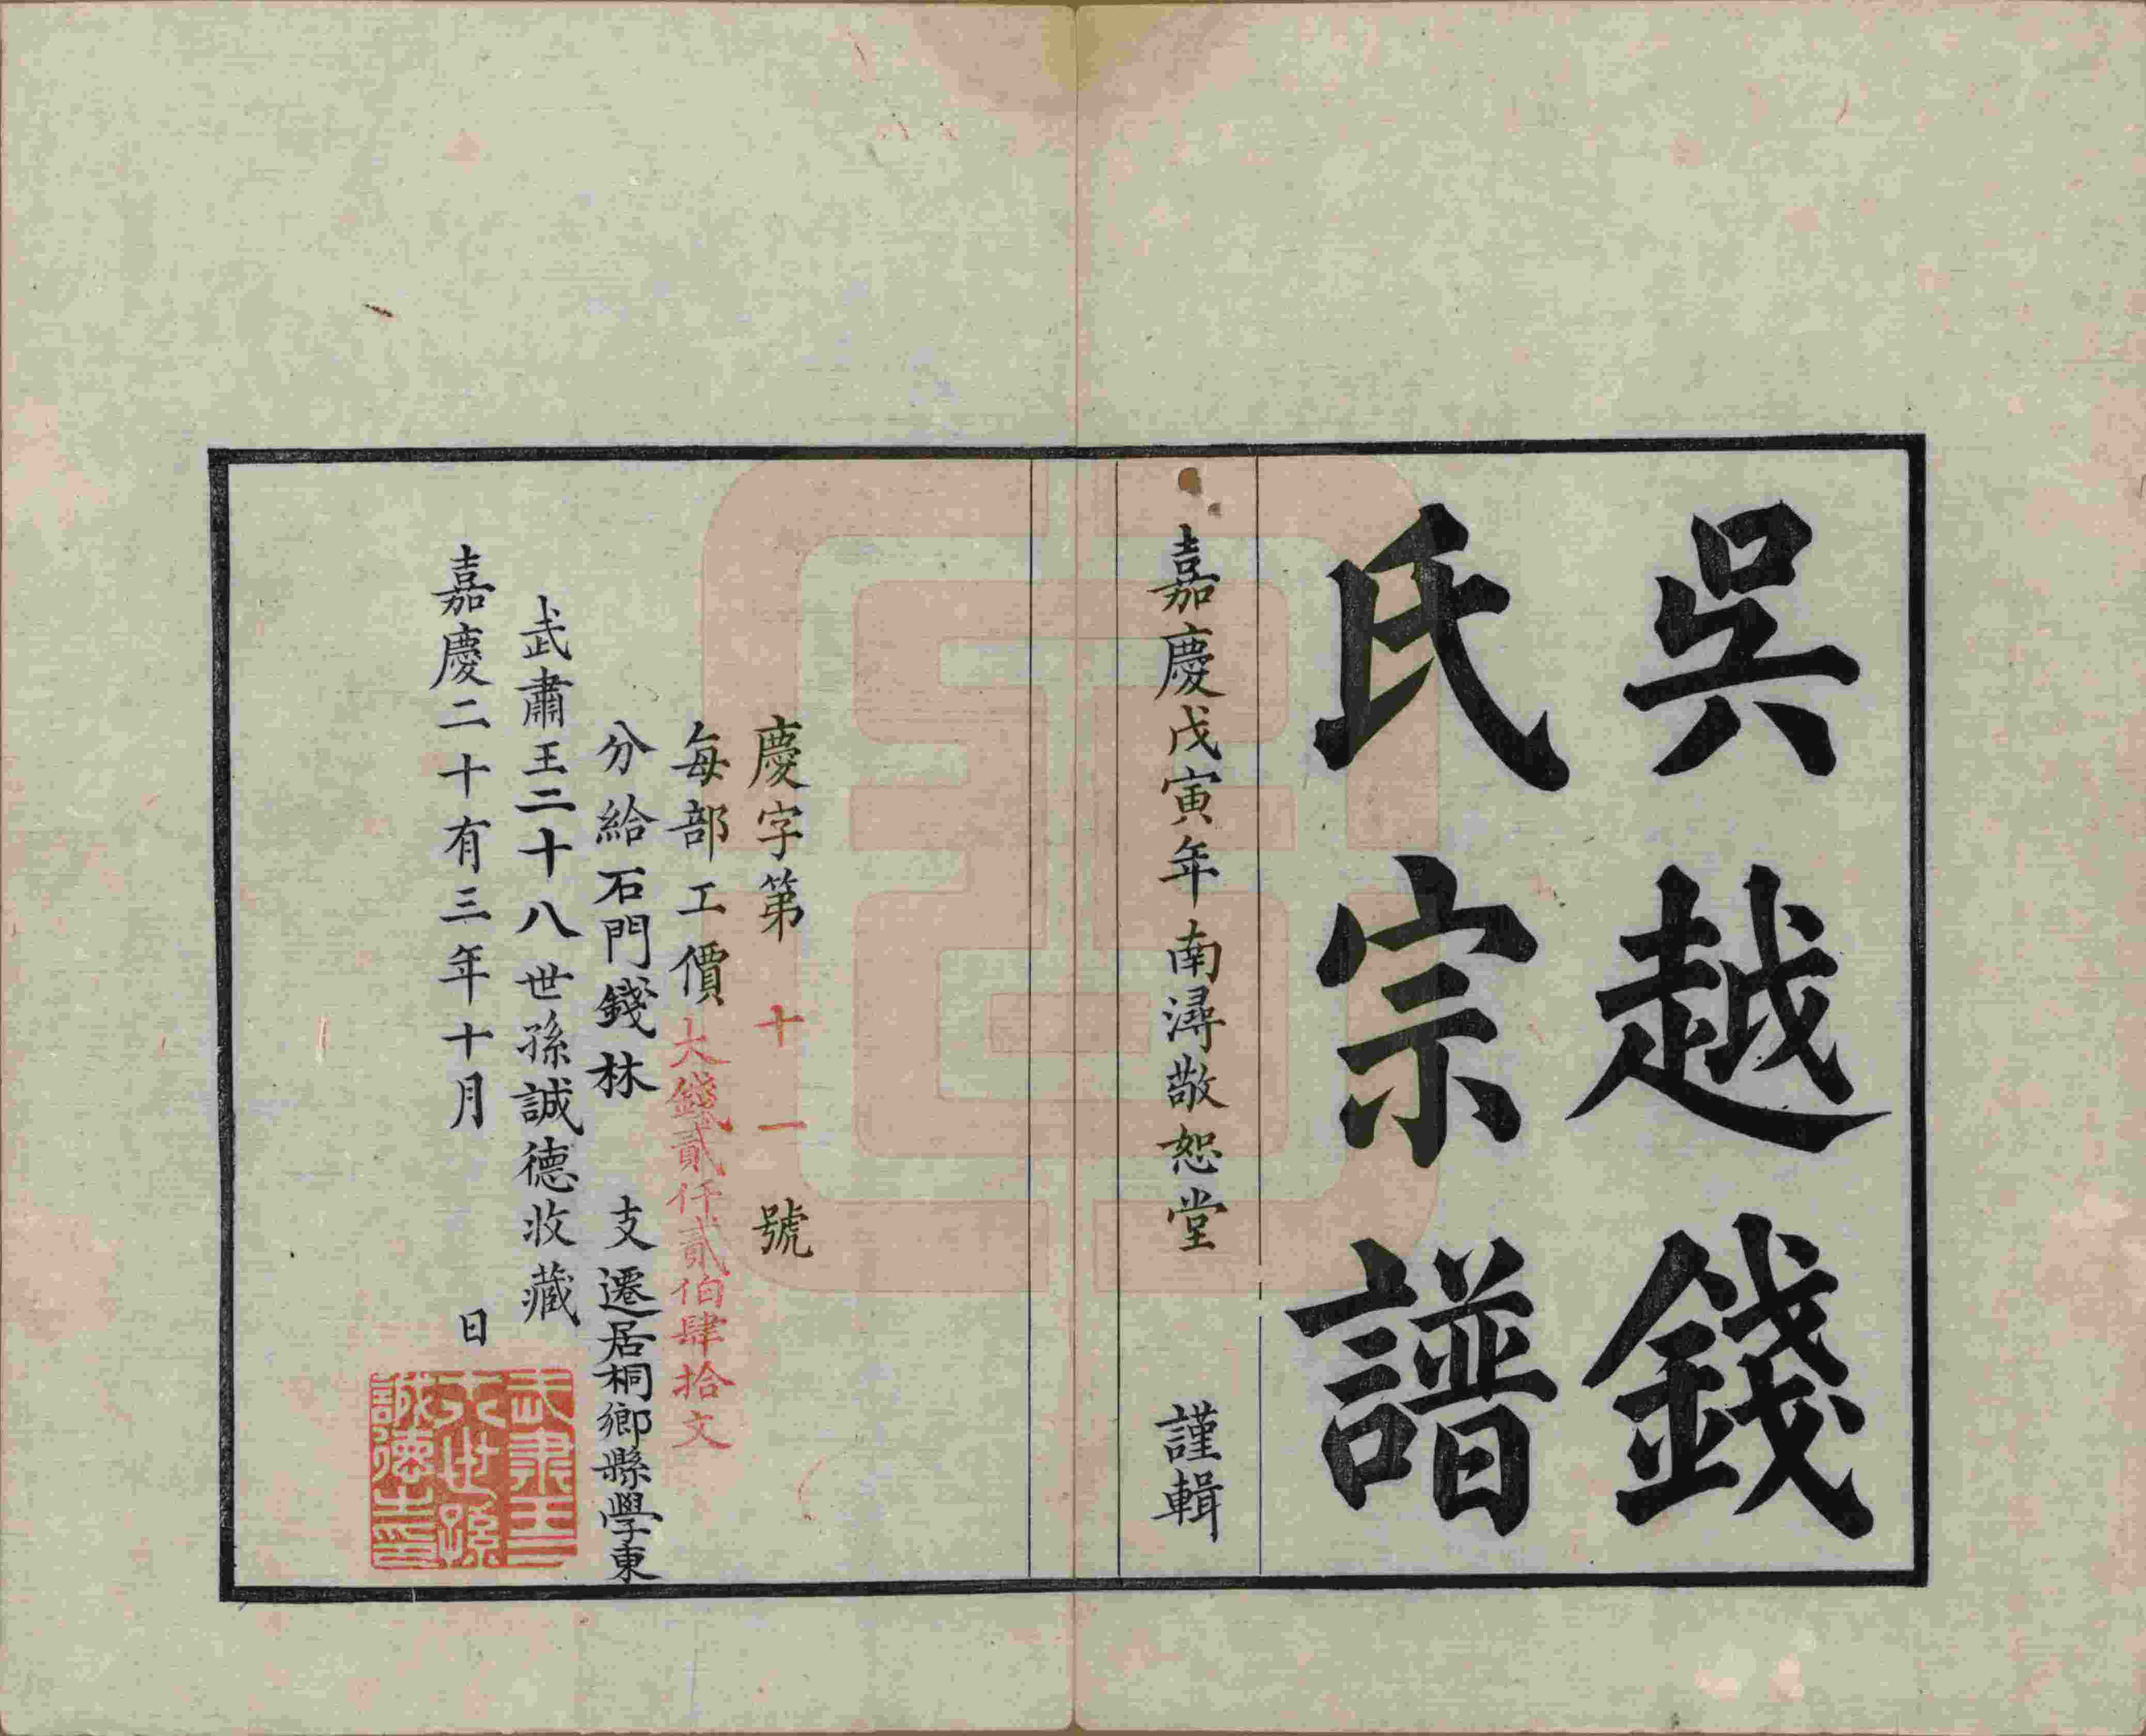 吳越錢
氏宗譜
嘉慶戊寅年南潯敬恕堂 謹輯
慶字第十一號
每部工價大錢貳仟貳伯肆拾文
分給石門錢林 支遷居桐鄉縣學東
武肅王二十八世孫誠德收藏
嘉慶二十有三年十月 日
武肅王二
十八世孫
誠德士印